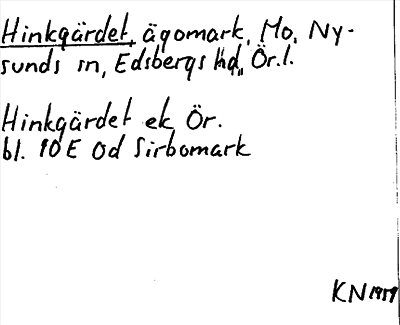 Hinkgärdet, ägomark, Mo, Ny-
sunds sn, Edsbergs hd, Ör.l.
Hinkgärdet ek Ör.
bl. 10E 0d Sirbomark
KN